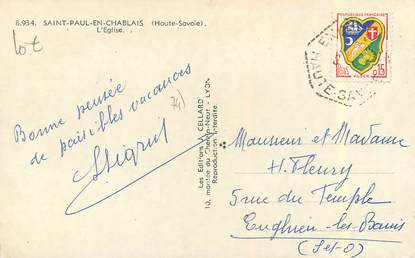 8.934. SAINT-PAUL-EN-CHABLAIS (Haute-Savoie).
L'Eglise.
lot
74)
Bonne pensée
de paisibles vacances
Les Editions J. CELLARD
10, montée du Chemin-Neuf - LYON
Reproduction Interdite
REPUBLIQUE FRANÇAISE
0,15
ALGER
HAUTE-SAVOIE
Monsieur et Madame
H. Fleury
5 rue du Temple
Enghien-les-Bains
(S-et-O)